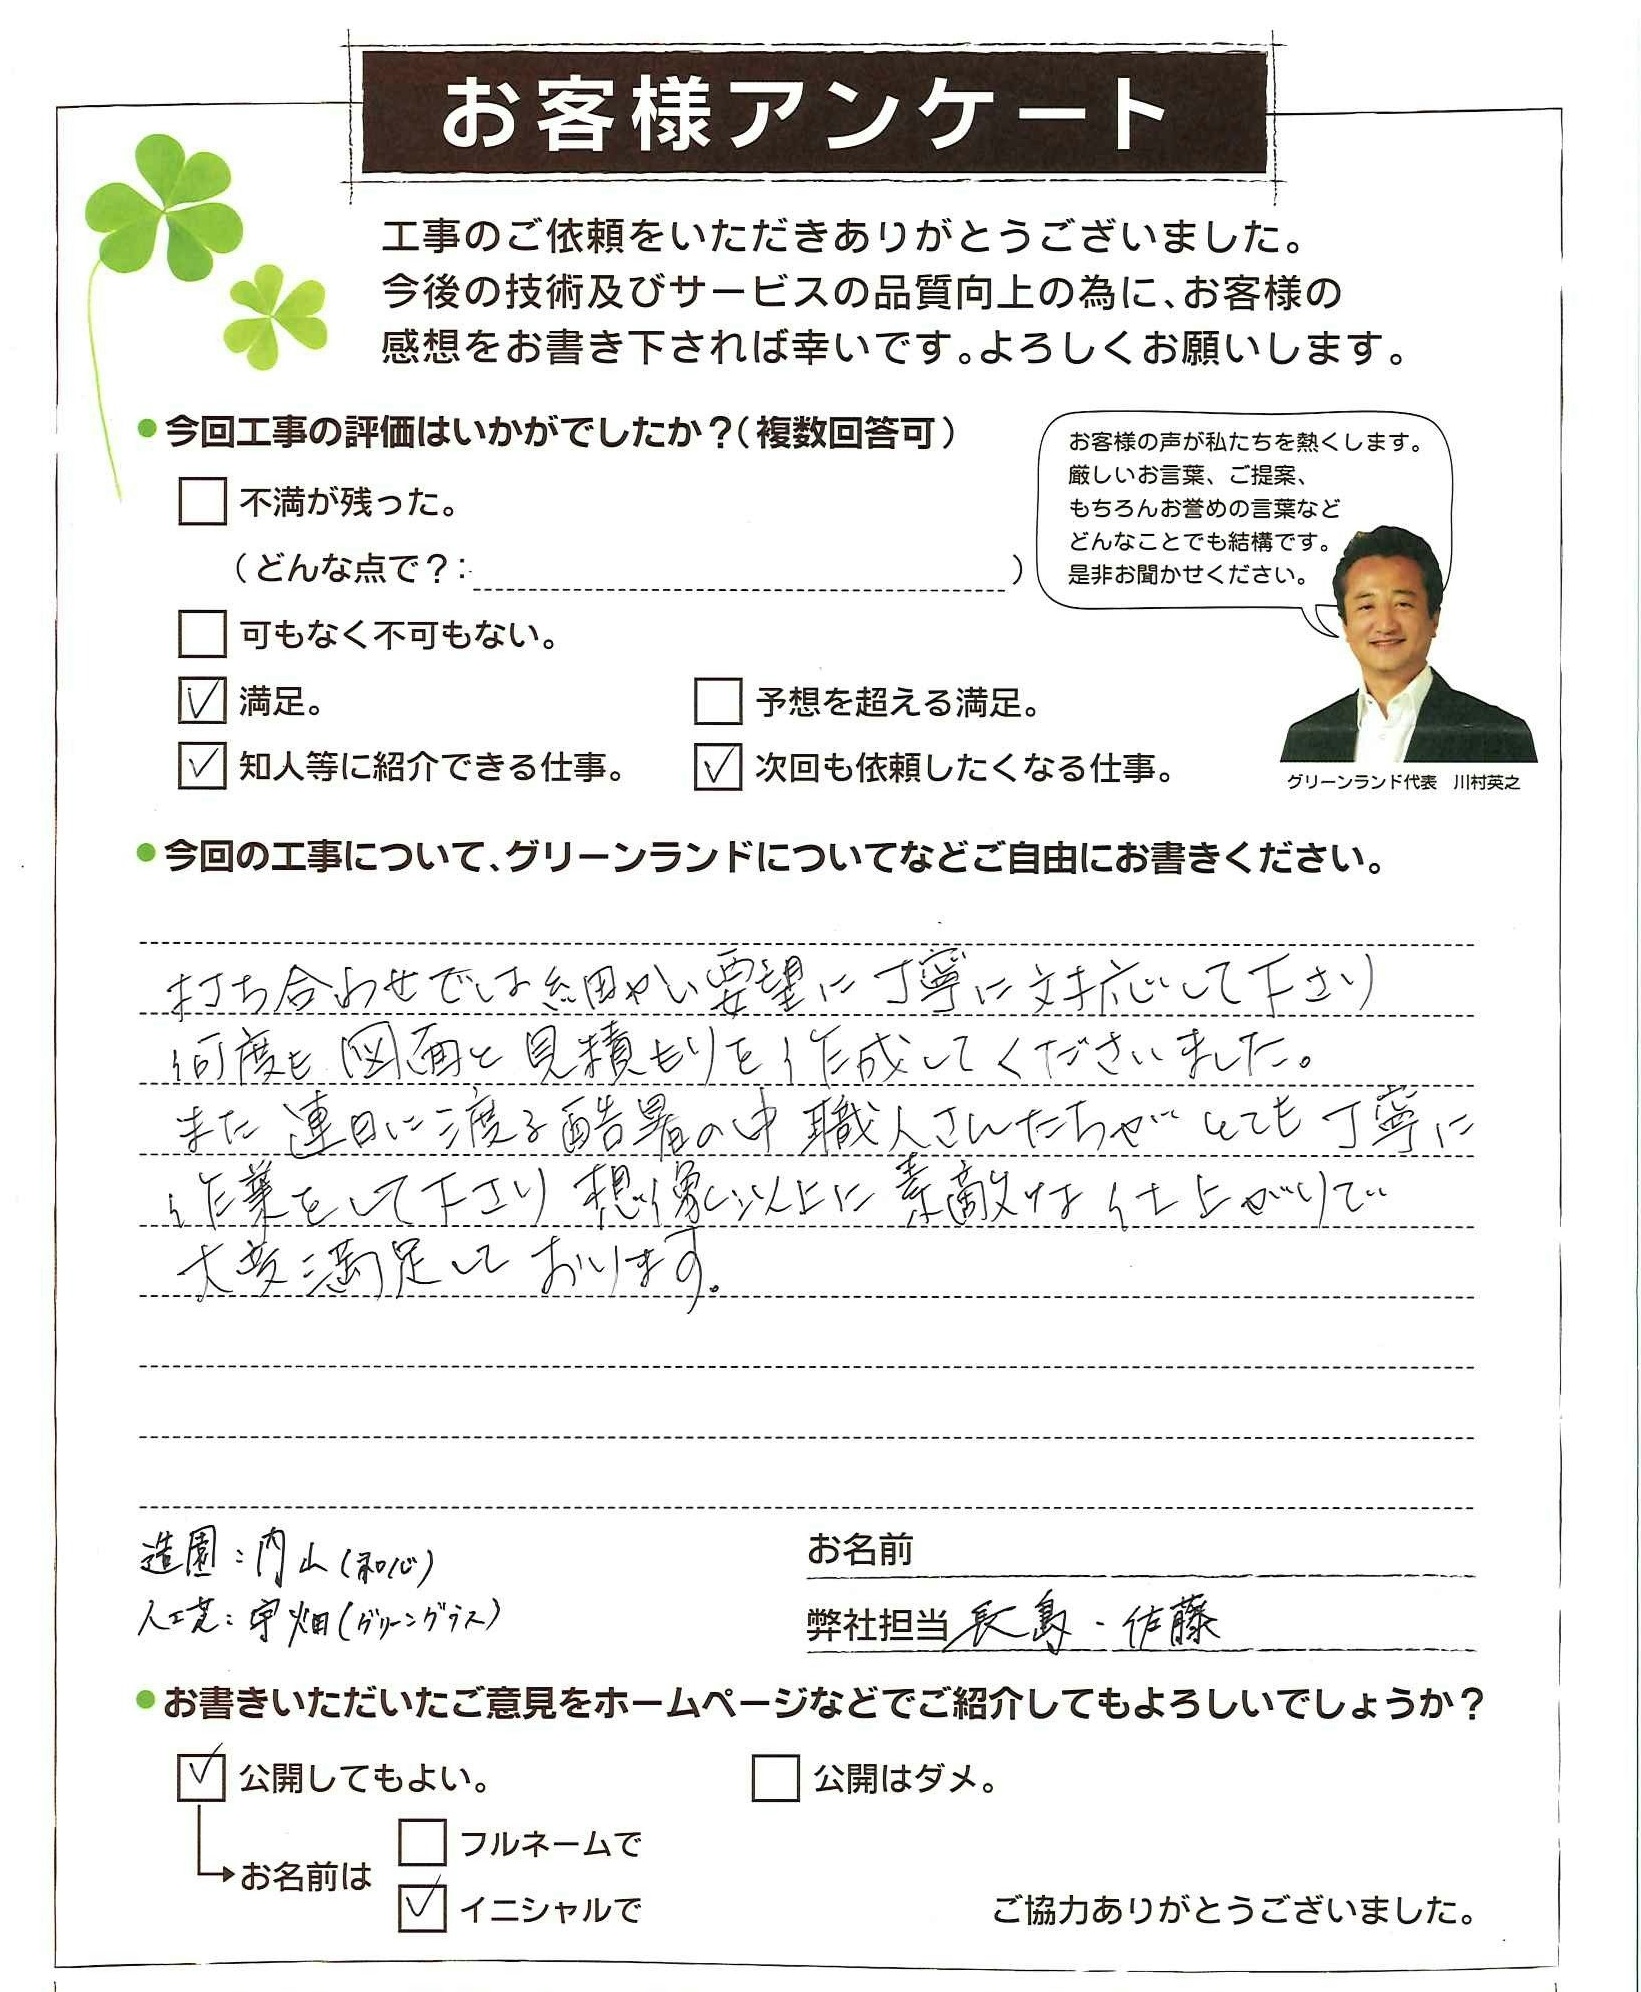 お客様アンケート
工事のご依頼をいただきありがとうございました。
今後の技術及びサービスの品質向上の為に、お客様の
感想をお書き下されば幸いです。よろしくお願いします。
●今回工事の評価はいかがでしたか？(複数回答可)
不満が残った。
（どんな点で？：　）
可もなく不可もない。
満足。
予想を超える満足。
知人等に紹介できる仕事。
次回も依頼したくなる仕事。
お客様の声が私たちを熱くします。
厳しいお言葉、ご提案、
もちろんお誉めの言葉など
どんなことでも結構です。
是非お聞かせください。
グリーンランド代表　川村英之
●今回の工事について、グリーンランドについてなどご自由にお書きください。
打ち合わせでは細やかい要望に丁寧に対応して下さり
何度も図面と見積もりを作成してくださいました。
また連日に渡る酷暑の中職人さんたちがとても丁寧に
作業をして下さり想像以上に素敵な仕上がりで
大変満足しております。
造園：内山(和心)
人工芝：宇畑(グリーングラス)
お名前
弊社担当 長島・佐藤
●お書きいただいたご意見をホームページなどでご紹介してもよろしいでしょうか？
公開してもよい。
公開はダメ。
お名前は
フルネームで
イニシャルで
ご協力ありがとうございました。